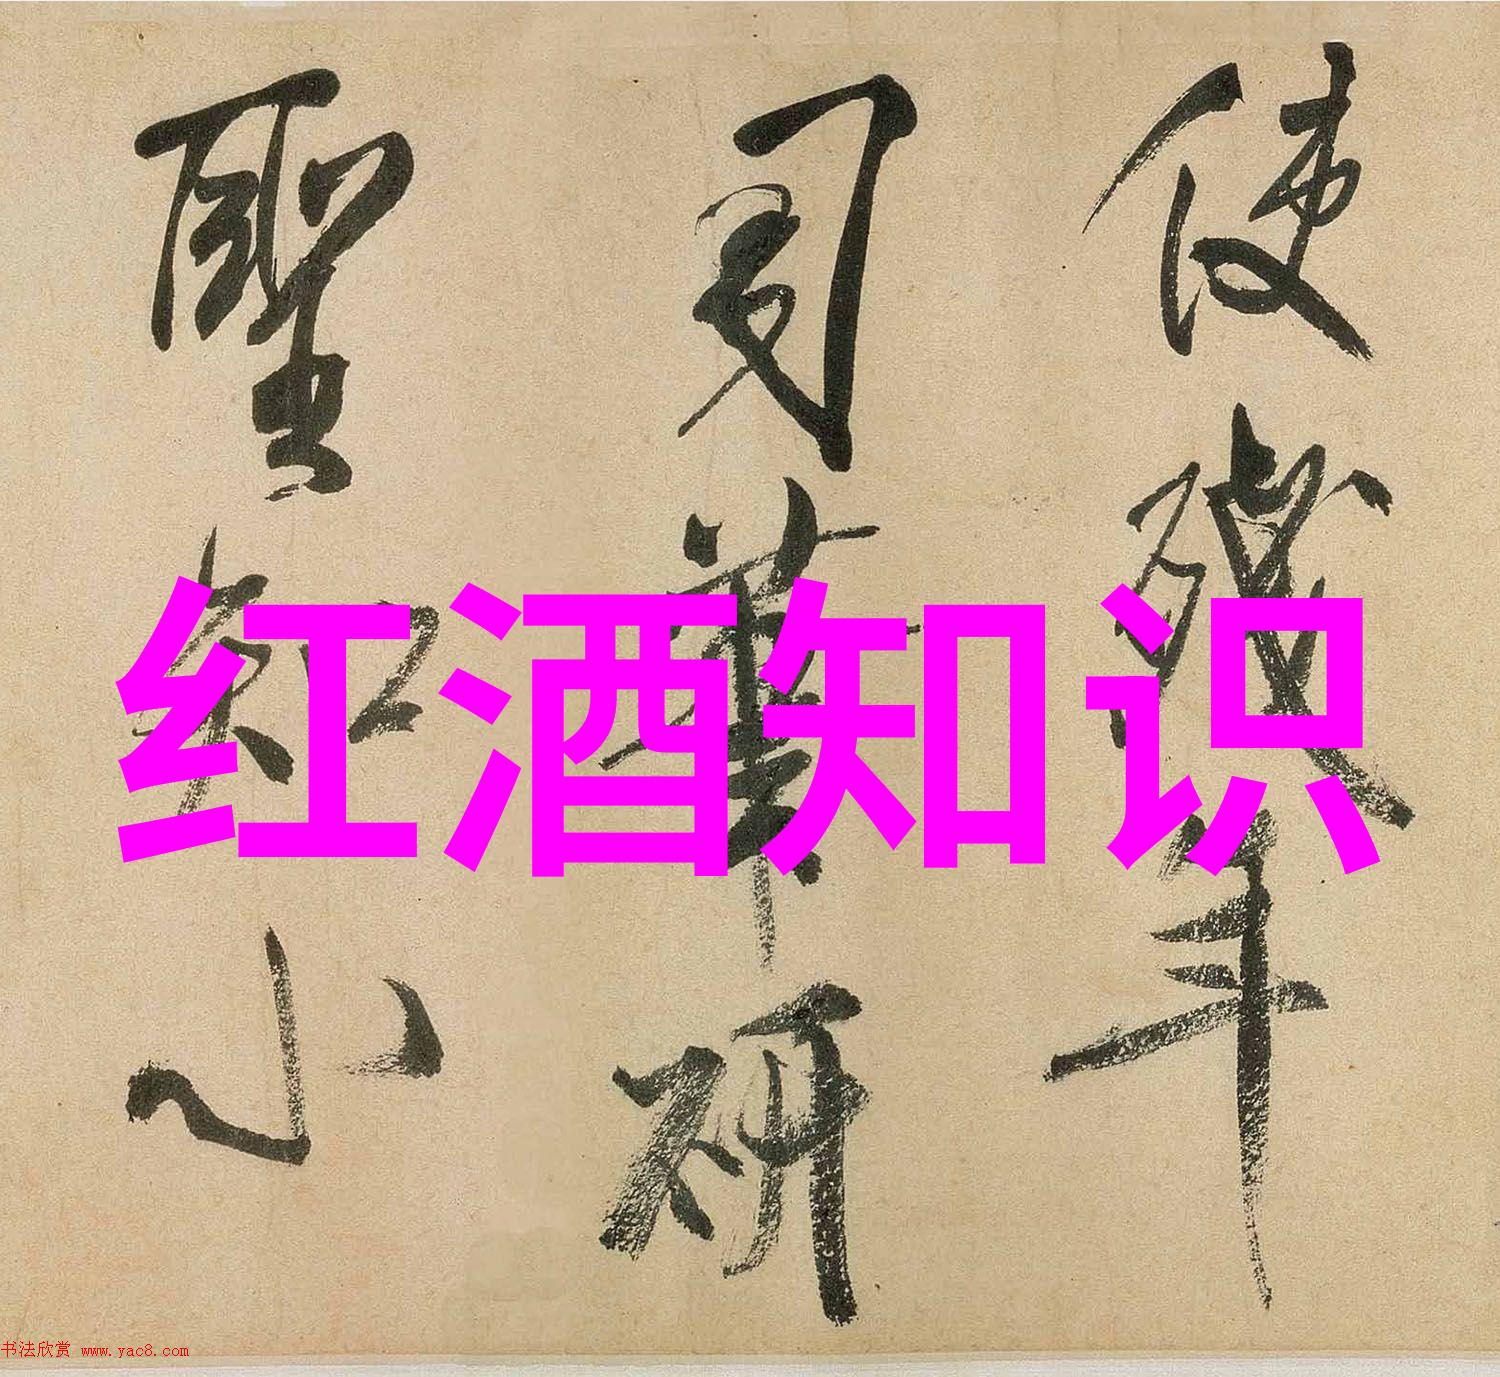 使殘年
司筆研
聖知小
红酒知识
书法欣赏 www.yac8.com